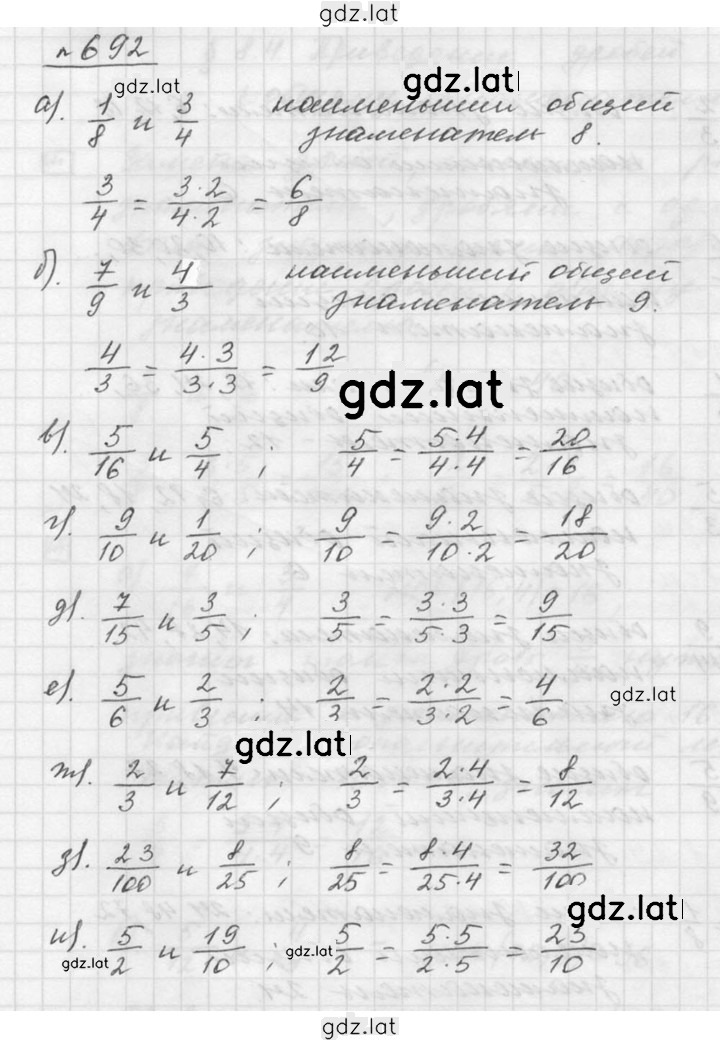 gdz.lat
№ 692
gdz.lat
gdz.lat
а). 1/8 и 3/4 наименьший общий
знаменатель 8.
3/4 = 3·2/4·2 = 6/8
б). 7/9 и 4/3 наименьший общий
знаменатель 9.
4/3 = 4·3/3·3 = 12/9
gdz.lat
в). 5/16 и 5/4 ; 5/4 = 5·4/4·4 = 20/16
г). 9/10 и 1/20 ; 9/10 = 9·2/10·2 = 18/20
д). 7/15 и 3/5 ; 3/5 = 3·3/5·3 = 9/15
е). 5/6 и 2/3 ; 2/3 = 2·2/3·2 = 4/6
gdz.lat
gdz.lat
ж). 2/3 и 7/12 ; 2/3 = 2·4/3·4 = 8/12
з). 23/100 и 8/25 ; 8/25 = 8·4/25·4 = 32/100
gdz.lat
и). 5/2 и 19/10 ; 5/2 = 5·5/2·5 = 25/10
gdz.lat
gdz.lat
gdz.lat